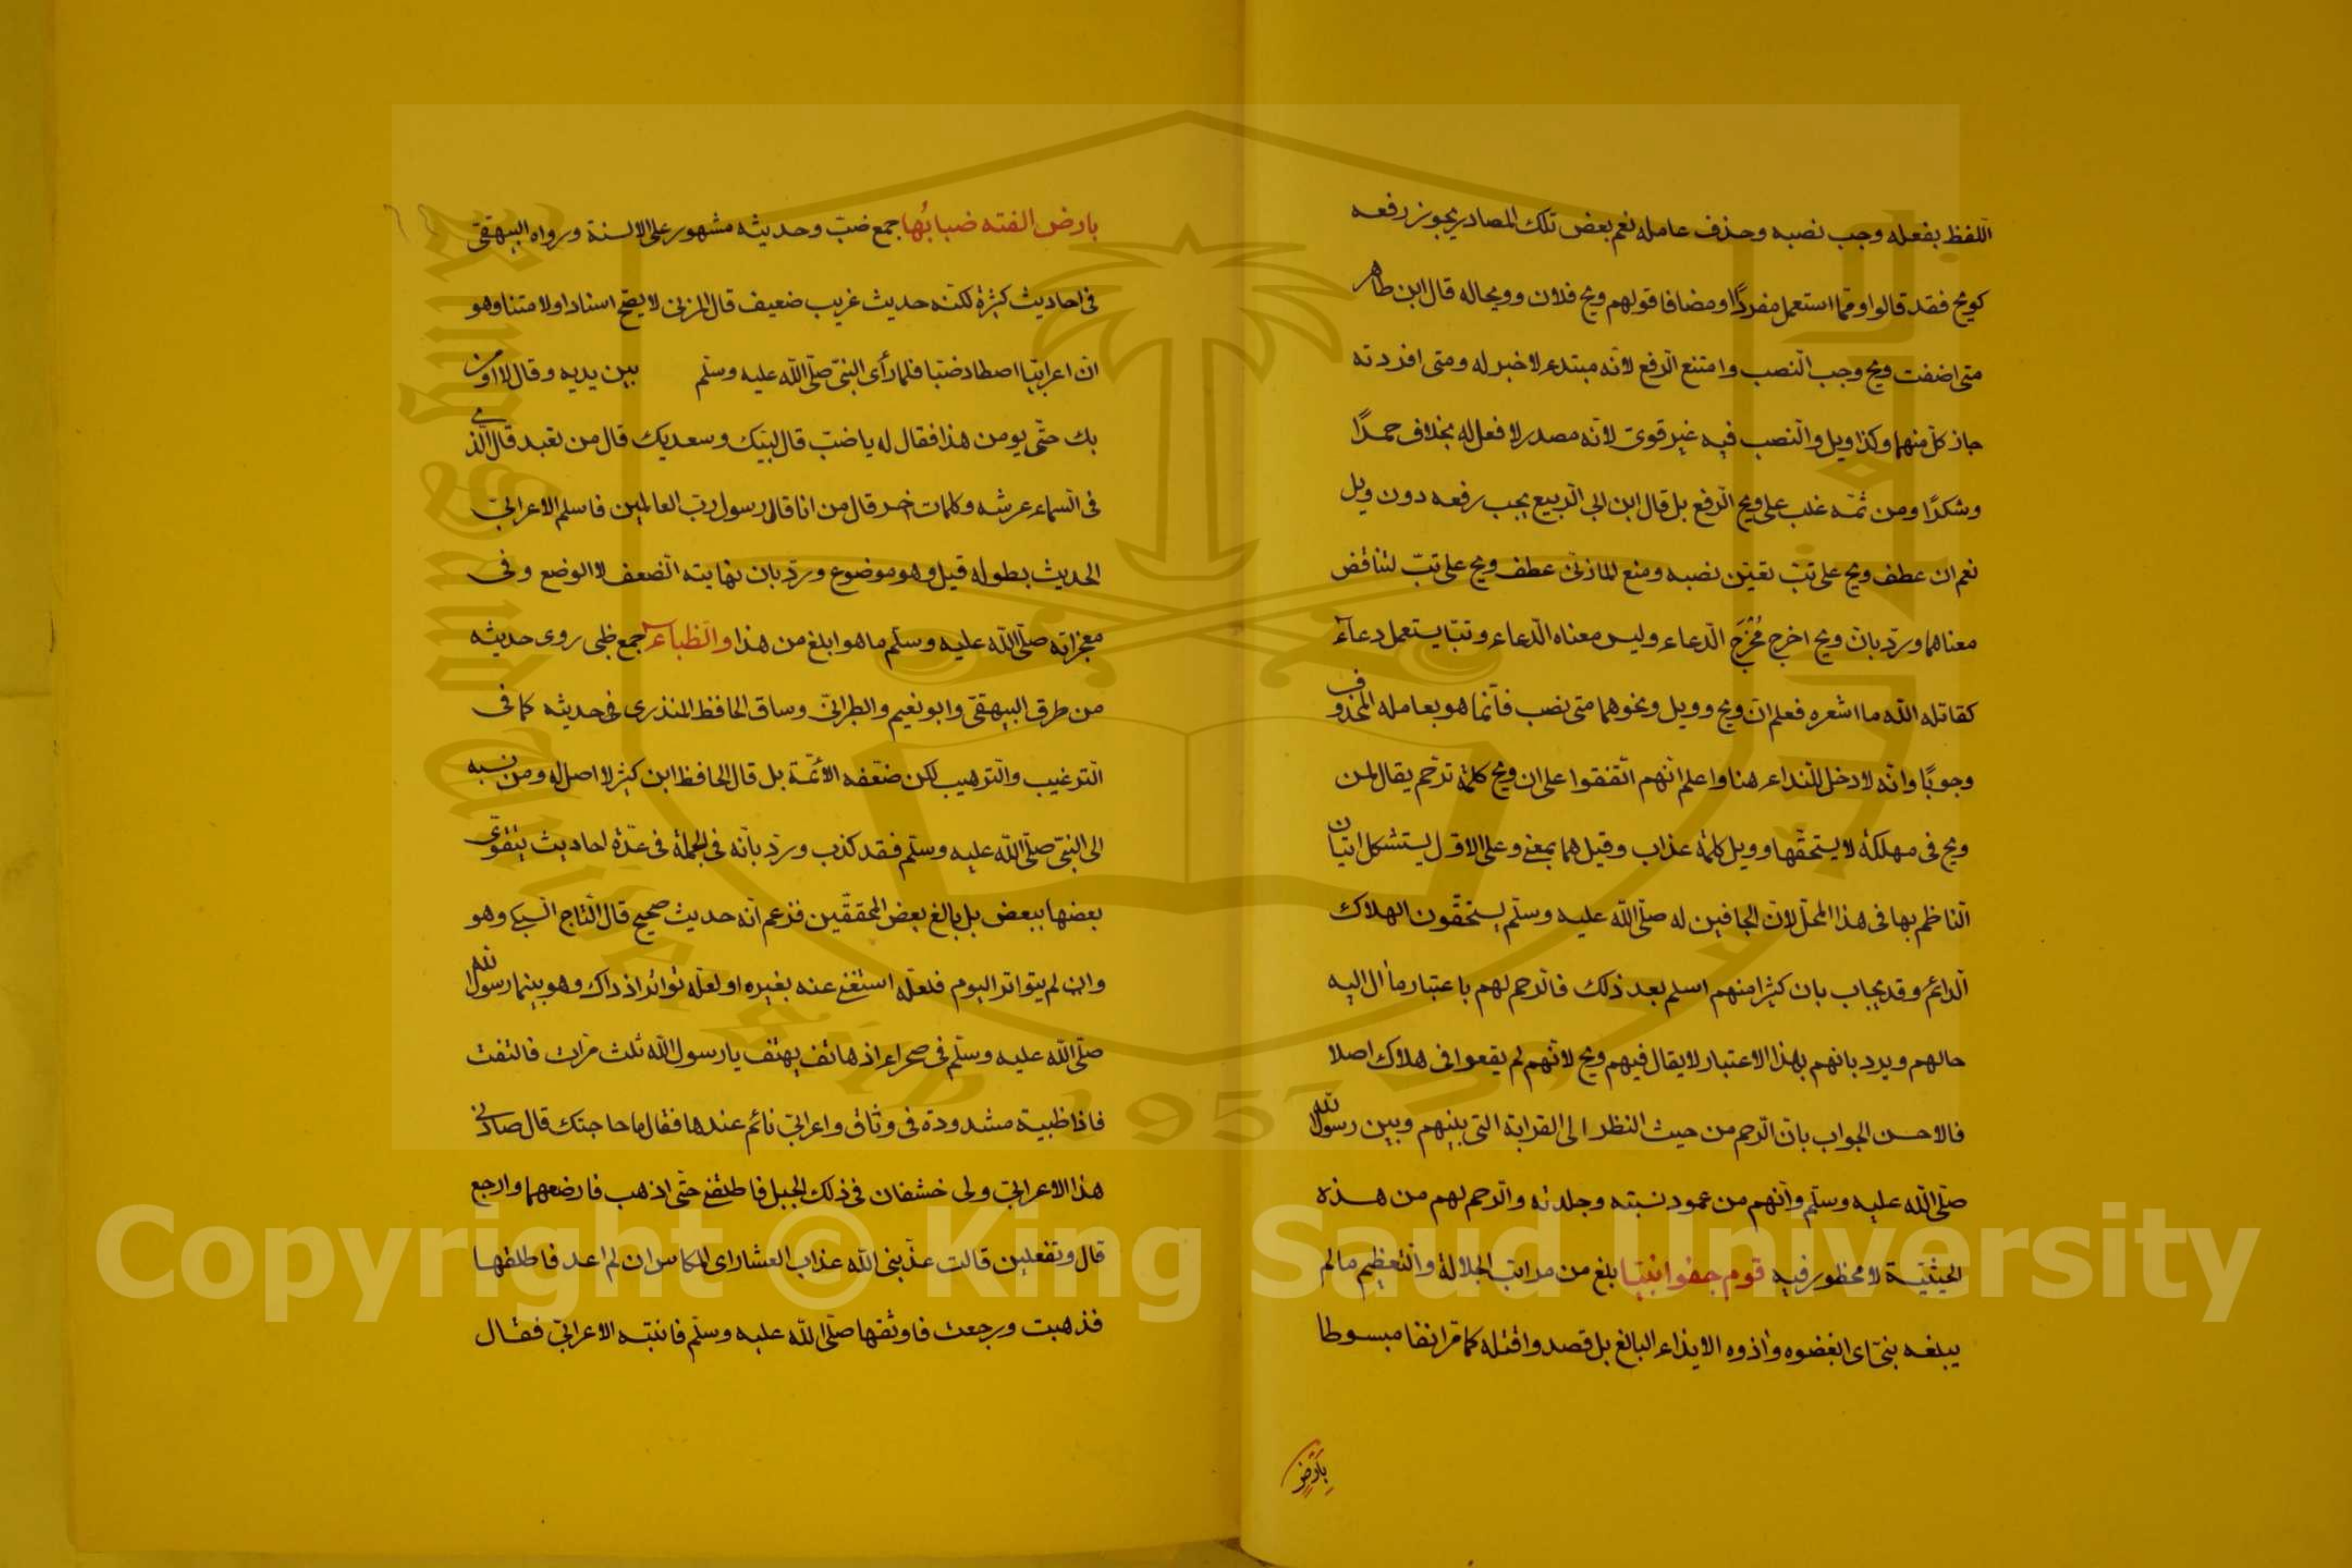 اللفظ بفعله وجب نصبه وحذف عامله نعم بعض تلك المصادر يجوز رفعه
كويح فقد قالوا ومما استعمل مفردًا ومضافا قولهم ويح فلان وويحاله قال ابن طاهر
متى اضفت ويح وجب النصب وامتنع الرفع لانّه مبتدء لا خبر له ومتى افردته
جاز كلّ منهما وكذا ويل والنصب فيه غير قوى لانه مصدر لا فعل له بخلاف حمدًا
وشكرًا ومن ثمّه غلب على ويح الرفع بل قال ابن ابى الربيع يجب رفعه دون ويل
نعم ان عطف ويح على تبّ تعيّن نصبه ومنع المازنىّ عطف ويح على تبّ لتناقض
معناهما وردّ بانّ ويح اخرج مُخْرَجَ الدعاء وليس معناه الدعاء وتبّا يستعمل دعاءً
كقاتله الله ما اشعره فعلم انّ ويح وويل ونحوهما متى نصب فانّما هو بعامله المحذوف
وجوبًا وانّه لا دخل للنداء هنا واعلم انّهم اتّفقوا على ان ويح كلمة ترحّم يقال لمن
ويح فى مهلكة لا يستحقّها وويل كلمة عذاب وقيل هما بمعنى وعلى الاوّل يستشكل اتيان
الناظم بها فى هذا المحلّ لانّ الجافين له صلّى الله عليه وسلّم يستحقّون الهلاك
الدائم وقد يجاب بان كثيرا منهم اسلم بعد ذلك فالترحم لهم باعتبار ما اٰل اليه
حالهم ويرد بانهم بهذا الاعتبار لا يقال فيهم ويح لانّهم لم يقعوا فى هلاك اصلا
فالاحسن الجواب بانّ الترحم من حيث النظر الى القرابة التى بينهم وبين رسول الله
صلّى الله عليه وسلّم وانّهم من عمود نسبته وجلدته والترحم لهم من هذه
الحيثيّة لا محظور فيه قوم جفوا نبيّا بلغ من مراتب الجلالة والتعظيم مالم
يبلغه نبىّ اى ابغضوه واٰذوه الايذاء البالغ بل قصدوا قتله كما مرّ انفا مبسوطا
بِاَرْضٍ
بارض الفته ضبابُها جمع ضبّ وحديثه مشهور على الالسنة ورواه البيهقى
فى احاديث كثيرة لكنّه حديث غريب ضعيف قال المزنى لا يصحّ اسنادا ولا متنا وهو
انّ اعرابيّا اصطاد ضبّا فلما رأى النبىّ صلّى الله عليه وسلّم بين يديه وقال لا اومن
بك حتّى يومن هذا فقال له يا ضبّ قال لبّيك وسعديك قال من تعبد قال الّذى
فى السماء عرشه وكلمات اخر قال من انا قال رسول ربّ العالمين فاسلم الاعرابىّ
الحديث بطوله قيل وهو موضوع وردّ بان نهايته الضعف لا الوضع وفى
معجزاته صلّى الله عليه وسلّم ما هو ابلغ من هذا والظباء جمع ظبى روى حديثه
من طرق البيهقىّ وابو نعيم والطبرانىّ وساق الحافظ المنذرى فى حديثه كما فى
الترغيب والترهيب لكن ضعّفه الأئمّة بل قال الحافظ ابن كثير لا اصل له ومن نسبه
الى النبىّ صلّى الله عليه وسلّم فقد كذب وردّ بانّه فى الجملة فى عدّة احاديث يتقوّى
بعضها ببعض بل بالغ بعض المحققّين فزعم انّه حديث صحيح قال التاج السبكى وهو
وان لم يتواتر اليوم فلعلّه استغنى عنه بغيره او لعلّه تواتر اذ ذاك وهو بينما رسول الله
صلّى الله عليه وسلّم فى صحراء اذ هاتف يهتف يا رسول الله ثلث مرّات فالتفت
فاذا ظبية مشدودة فى وثاق واعرابىّ نائم عندها فقال ما حاجتك قال صادنى
هذا الاعرابىّ ولى خشفان فى ذلك الجبل فاطلقنى حتّى اذهب فارضعهما وارجع
قال وتفعلين قالت عذّبنى الله عذاب العشار اى المكاس ان لم اعد فاطلقها
فذهبت ورجعت فاوثقها صلّى الله عليه وسلّم فانتبه الاعرابىّ فقال
King Saud University
1957
Copyright © King Saud University